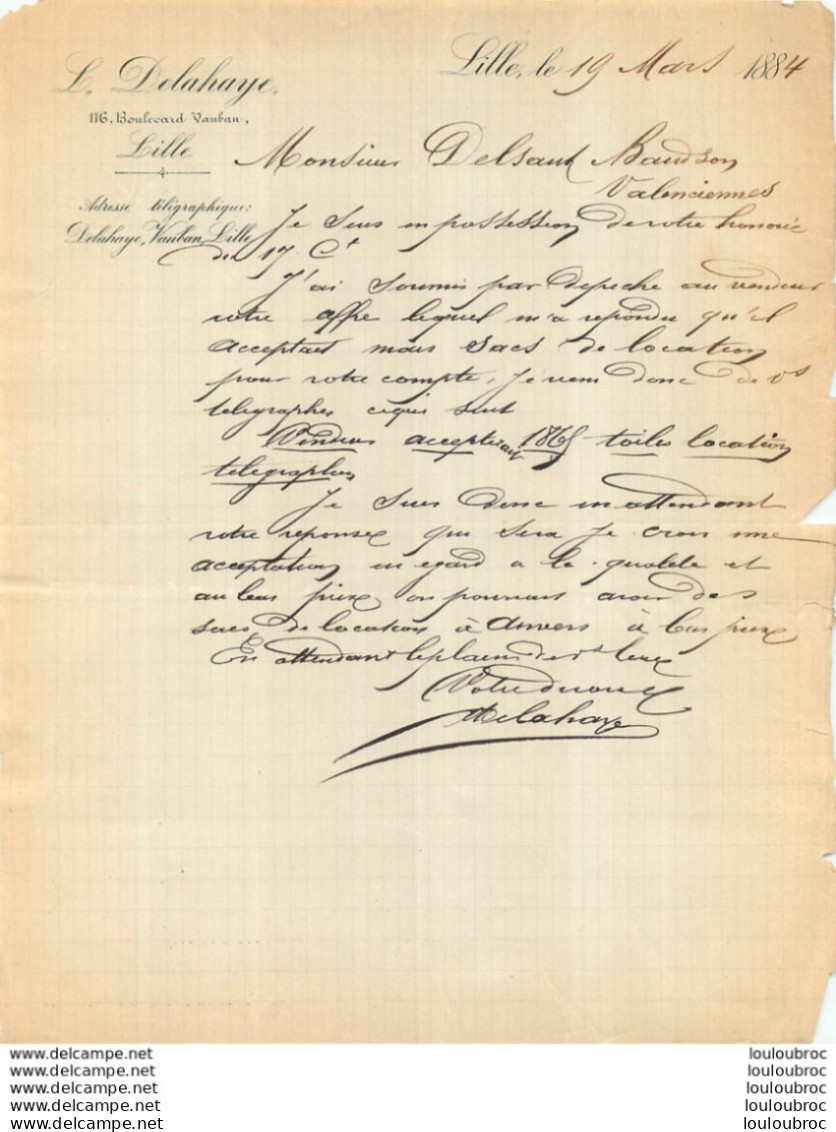 L. Delahaye.
116, Boulevard Vauban,
Lille
Adresse télégraphique:
Delahaye, Vauban, Lille
Lille, le 19 Mars 1884
Monsieur Delsaux Baudson
Valenciennes
Je suis en possession de votre honorée
du 17 Ct
J'ai soumis par depeche au vendeur
votre offre lequel m'a repondu qu'il
acceptait mais sacs de location
pour votre compte, je viens donc de vs
telegraphier ceque suit
Vendeur accepterait toiles location
telegraphiez
Je suis donc en attendant
votre reponse qui sera je crois une
acceptation en egard a la qualite et
au bas prix, on pourrait avoir des
sacs de location à Anvers à bas prix
En attendant le plaisir de vs lire
Votre devoué
Delahaye
www.delcampe.net
www.delcampe.net
www.delcampe.net
www.delcampe.net
www.delcampe.net
louloubroc
louloubroc
louloubroc
louloubroc
louloubroc